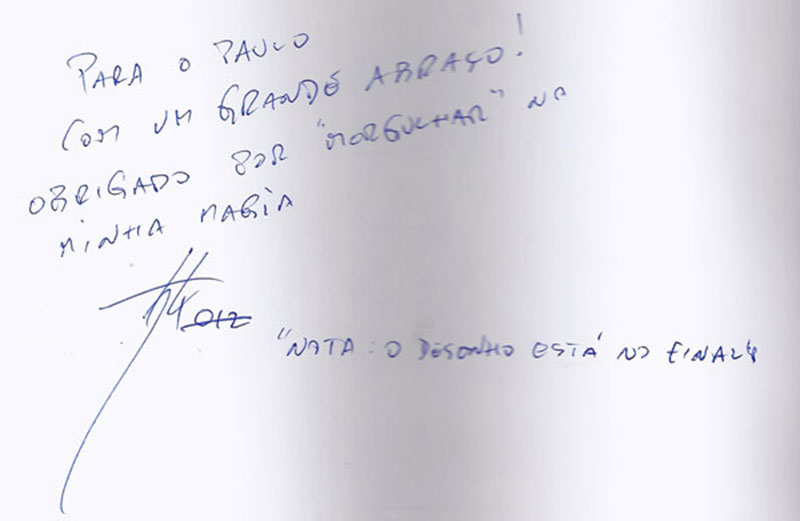 PARA O PAULO
COM UM GRANDE ABRAÇO!
OBRIGADO POR "MORGULHAR" NA
MINHA MAGIA
2012
"NOTA: O DESENHO ESTÁ NO FINAL"